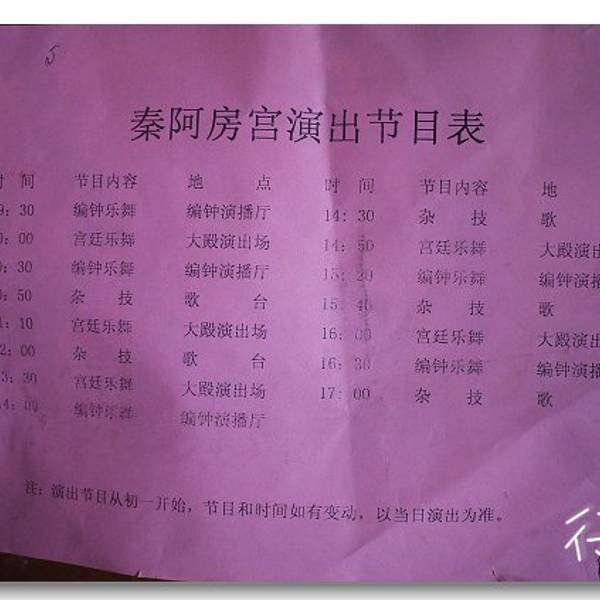 5
秦阿房宫演出节目表
时 间 节目内容 地 点 时 间 节目内容 地
9：30 编钟乐舞 编钟演播厅 14：30 杂 技 歌
0：00 宫廷乐舞 大殿演出场 14：50 宫廷乐舞 大殿演出
0：30 编钟乐舞 编钟演播厅 15：20 编钟乐舞 编钟演播
0：50 杂 技 歌 台 15：40 杂 技 歌
1：10 宫廷乐舞 大殿演出场 16：00 宫廷乐舞 大殿演出
2：00 杂 技 歌 台 16：30 编钟乐舞 编钟演播
3：30 宫廷乐舞 大殿演出场 17：00 杂 技 歌
14：00 编钟乐舞 编钟演播厅
注：演出节目从初一开始，节目和时间如有变动，以当日演出为准。
行